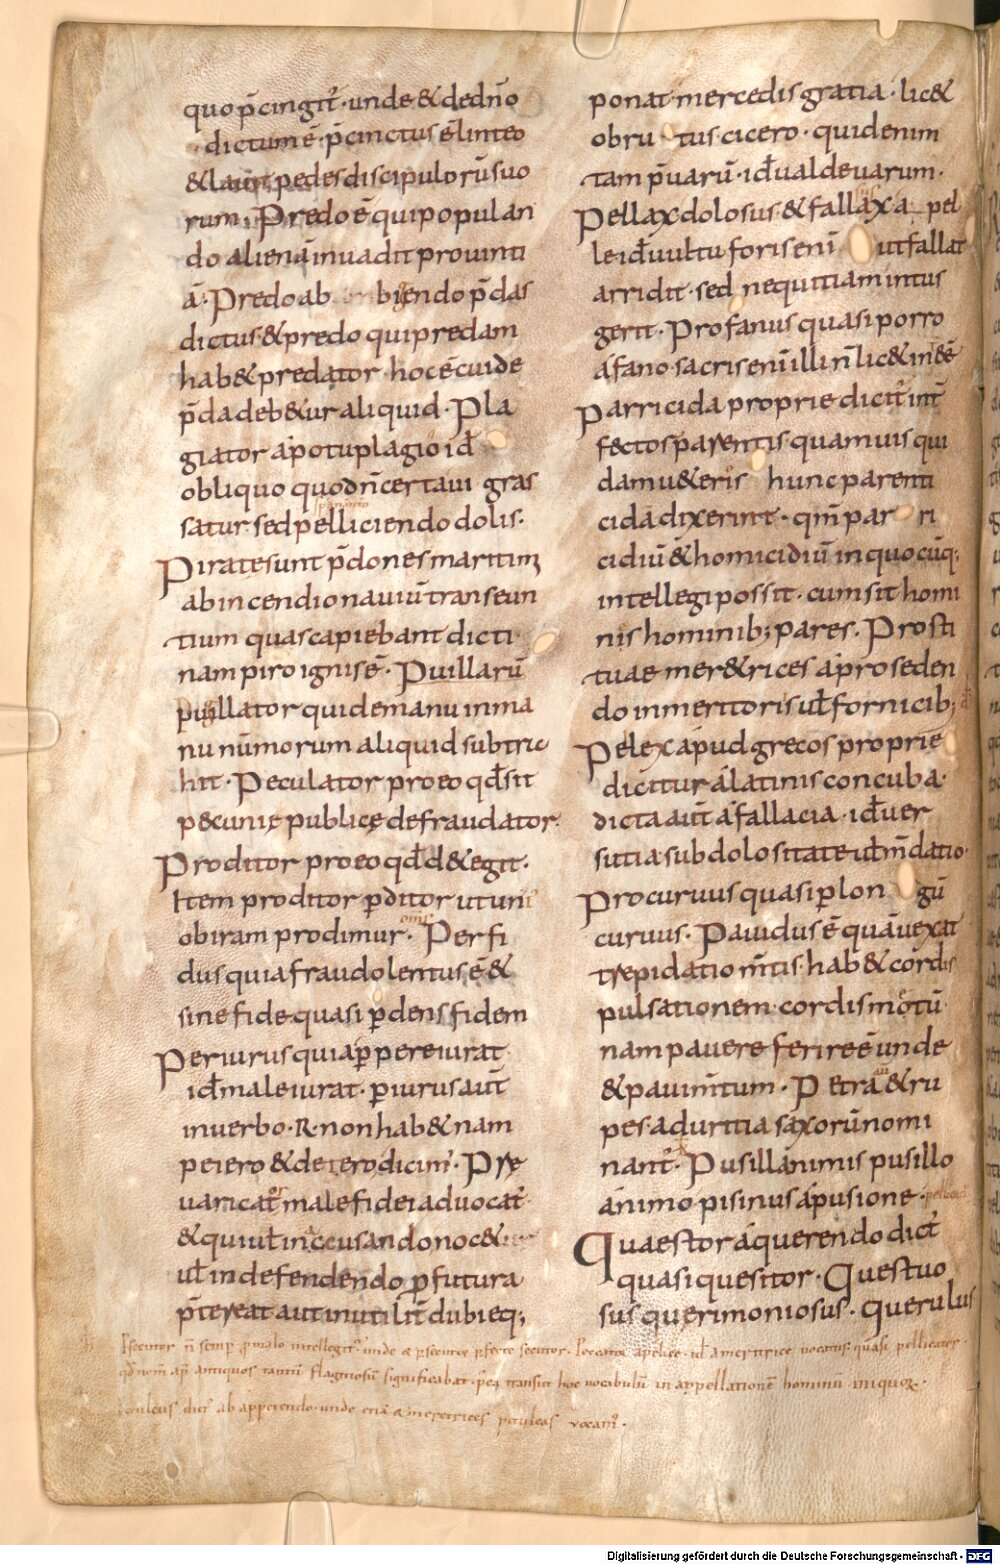 quo p̄cingit᷒· unde & ded nō
dictum ē· p̄cinctus ē linteo
& lauit pedes discipulorū suo
rum· Predo ē qui populan
do alienā inuadit prouinti
ā· Predo ab biendo p̄das
dictus & predo qui predam
hab& predator hoc ē cui de
p̄da deb&ur aliquid· Pla
giator apotuplagio id̄
obliquo quod n̄ certa ui gras
satur sed pelliciendo dolis·
Pirate sunt p̄dones maritimę
ab incendio nauiū transeun
tium quas capiebant dicti·
nam piro ignis ē· Puillarū
puillator qui de manu in ma
nu nūmorum aliquid subtra
hit· Peculator pro eo qd̄ sit
p&cunię publicę defraudator·
Proditor pro eo qd̄ d&egit·
Item proditor p̄ditor ut uni
ob iram prodimur· Perfi
dus quia fraudolentus ē &
sine fide quasi ꝑdens fidem
Periurus quia ꝑpere iurat
id̄ male iurat· ꝑiurus aut̄
in uerbo· R· non hab& nam
peiero & deiero dicim᷒· Pre
uaricat᷒ male fidei aduocat᷒
& qui ul̄ in accusando noc&
ul̄ in defendendo ꝓfutura
p̄tereat aut inutilit̄ dubieq;
ponat mercedis gratia· lic&
obru tus cicero· quid enim
tam p̄uarū· id̄ ualde uarum·
Pellax dolosus & fallax a pel
le id̄ uultu foris enī ut fallat
arridit· sed nequitiam intus
gerit· Profanus quasi porro
a fano sacris enī illi n̄ lic& inēē
Parricida proprie dicit᷒ int̄
f&ctos parentis quamuis qui
dam u&eris hunc parenti
cidā dixerint· qm̄ par ri
cidiū & homicidiū in quocūq;
intellegi possit· cum sit homi
nis hominib; pares. Prosti
tuae mer&rices a pro seden
do in meritoris ul̄ fornicib;
Pelex apud grecos proprie
dicitur a latinis concuba·
dicta aut̄ a fallacia· id̄ uer
sutia subdolositate ul̄ m̄datio
Procuruus quasi ꝑ lon gū
curuus· Pauidus ē quā uexat
trepidatio m̄tis· hab& cordis
pulsationem cordis motū
nam pauere ferire ē unde
& pauim̄tum· Petra & ru
pes a duritia saxorū nomi
nant᷒· Pusillanimis pusillo
animo pisinus a pusione·
Quaestor a querendo dict᷒
quasi quesitor· Questuo
sus querimoniosus· Querulus
secutor n̄ semꝑ ꝓ malo intellegit᷒· unde & ꝑsecutor ꝑfecte secutor·
qd̄ nom̄ ap̄ antiquos tantū flagitiosū significabat· transiit hoc uocabulū in appellationē hominū iniquoꝝ·
dict᷒ ab appetendo· unde etiā & meretrices petulcas uocam᷒·
Digitalisierung gefördert durch die Deutsche Forschungsgemeinschaft - DFG